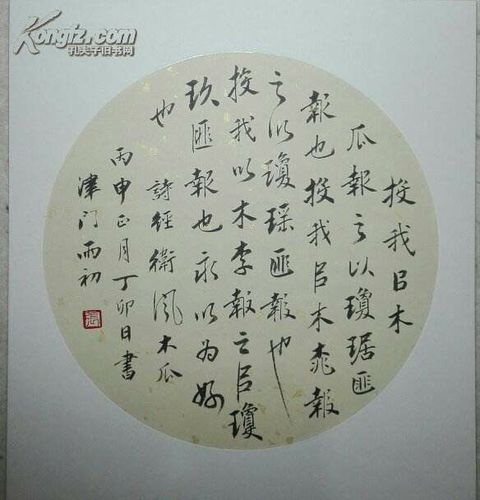 Kongfz.com
孔夫子旧书网
投我㠯木
瓜報之以瓊琚匪
報也投我㠯木桃報
之以瓊瑤匪報也
投我以木李報之㠯瓊
玖匪報也永以为好
也 詩經衛風木瓜
丙申正月丁卯日書
津门雨初